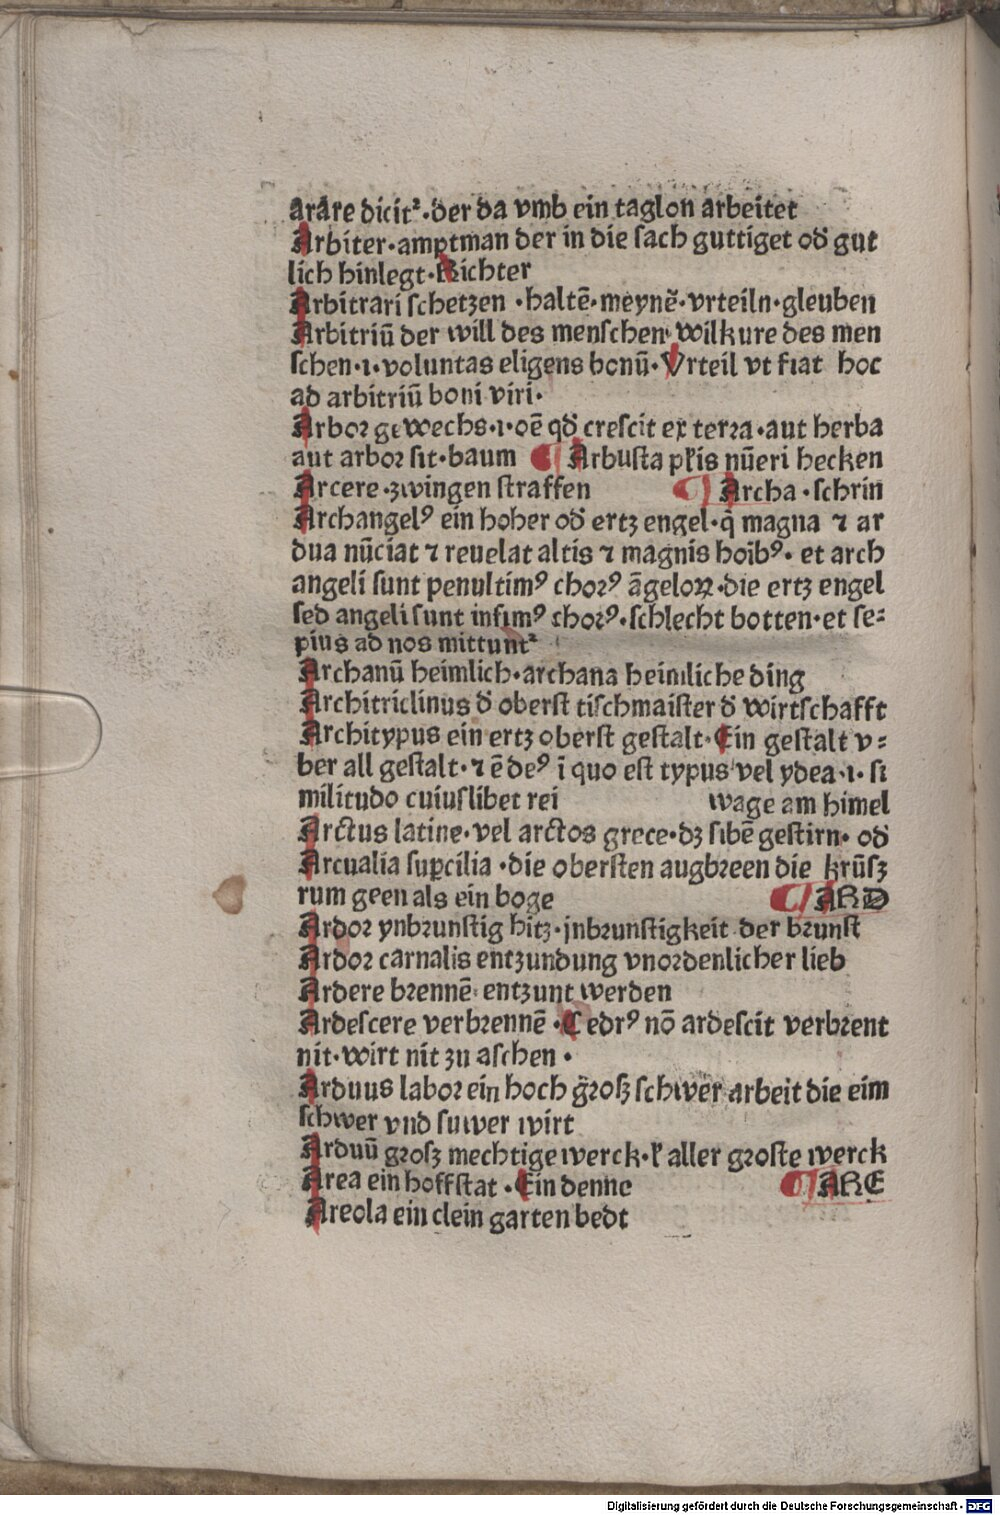 arare dicitꝛ·der da vmb ein taglon arbeitet
Arbiter·amptman der in die ſach guttiget od̄ gut
lich hinlegt·Richter
Arbitrari ſchetzen ·haltē·meynē·vrteiln·gleuben
Arbitriū der will des menſchen·wilkure des men
ſchen·i·voluntas eligens bonū·Vrteil vt fiat hoc
ad arbitriū boni viri·
Arboꝛ gewechs·i·oē qd̄ creſcit ex terra·aut herba
aut arboꝛ ſit·baum ¶ Arbuſta pľis nūeri hecken
Arcere·zwingen ſtraffen ¶ Archa·ſchrin
Archangelꝰ ein hoher od̄ ertz engel·q̄ magna ⁊ ar
dua nūciat ⁊ reuelat altis ⁊ magnis hoībꝰ· et arch
angeli ſunt penultimꝰ choꝛꝰ āgeloꝝ·die ertz engel
ſed angeli ſunt infimꝰ choꝛꝰ·ſchlecht botten·et ſe⸗
pius ad nos mittuntꝛ
Archanū heimlich·archana heimliche ding
Architriclinus d̄ oberſt tiſchmaiſter d̄ wirtſchafft
Architypus ein ertz oberſt geſtalt·Ein geſtalt v⸗
ber all geſtalt·⁊ ē deꝰ ī quo eſt typus vel ydea·i·ſi
militudo cuiuſlibet rei wage am himel
Arctus latine·vel arctos grece·dz ſibē geſtirn· od̄
Arcualia ſuꝑcilia ·die oberſten augbꝛeen die krūſz
rum geen als ein boge ¶ ARD
Ardoꝛ ynbꝛunſtig hitz·jnbꝛunſtigkeit der bꝛunſt
Ardoꝛ carnalis entzundung vnoꝛdenlicher lieb
Ardere bꝛennē·entzunt werden
Ardeſcere verbꝛennē ·Cedrꝰ nō ardeſcit verbꝛent
nit·wirt nit zu aſchen·
Arduus laboꝛ ein hoch gꝛoſz ſchwer arbeit die eim
ſchwer vnd ſuwer wirt
Arduū gꝛoſz mechtige werck·ľ aller gꝛoſte werck
Area ein hoffſtat·Ein denne ¶ ARE
Areola ein clein garten bedt
Digitalisierung gefördert durch die Deutsche Forschungsgemeinschaft · DFG